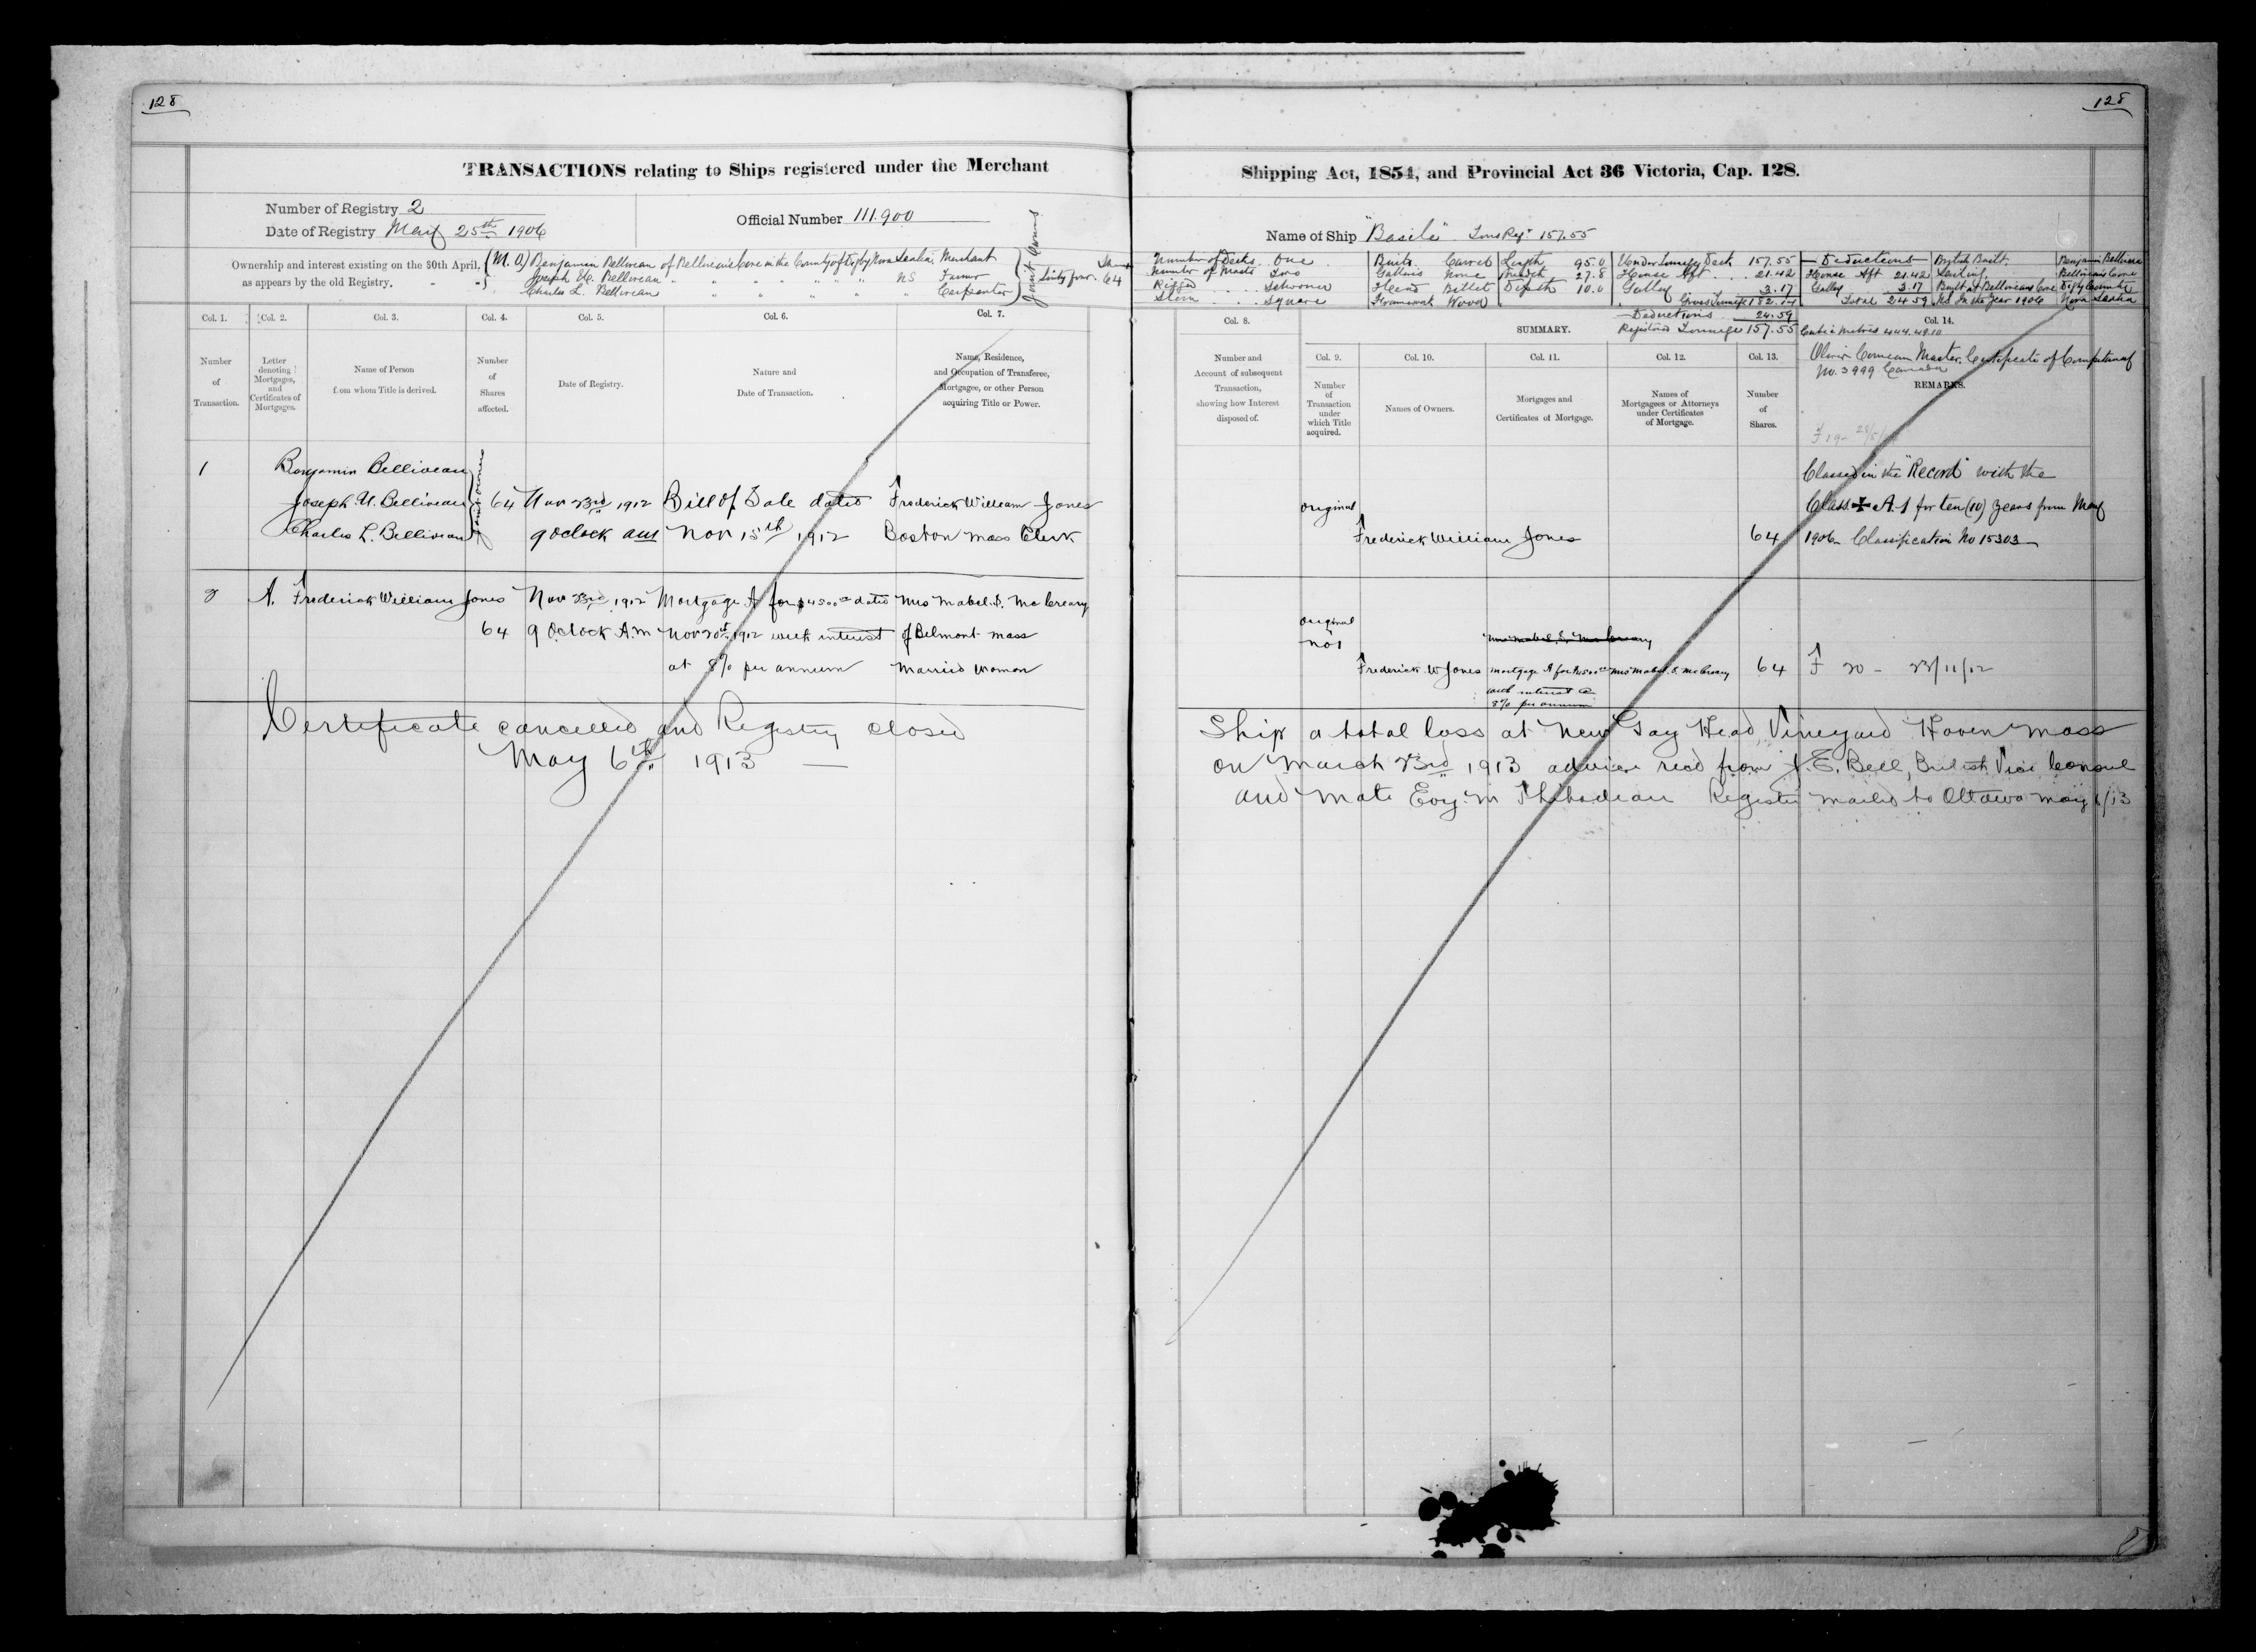 128
TRANSACTIONS relating to Ships registered under the Merchant
Number of Registry 2
Date of Registry May 25th 1906
Official Number 111.900
Ownership and interest existing on the 30th April, as appears by the old Registry.
(M.O) Benjamin Belliveau of Belliveau's Cove in the County of Digby Nova Scotia Merchant
Joseph U. Belliveau " " " " " " NS Farmer
Charles L. Belliveau " " " " " Carpenter
Joint Owners
Sixty four. 64
Col. 1. Col. 2. Col. 3. Col. 4. Col. 5. Col. 6. Col. 7.
Number of Transaction.
Letter denoting Mortgages, and Certificates of Mortgages.
Name of Person from whom Title is derived.
Number of Shares affected.
Date of Registry.
Nature and Date of Transaction.
Name, Residence, and Occupation of Transferee, Mortgagee, or other Person acquiring Title or Power.
1 Benjamin Belliveau
Joseph U. Belliveau 64 Nov 23rd 1912 Bill of Sale dated Frederick William Jones
Charles L. Belliveau 9 oclock am Nov 15th 1912 Boston Mass Clerk
Joint owners
2 A. Frederick William Jones Nov 23rd 1912 Mortgage A for $4500 dated Mrs Mabel S. McCreary
64 9 Oclock A.M Nov 20th 1912 with interest of Belmont Mass
at 8% per annum Married Woman
Certificate cancelled and Registry closed
May 6th 1913 —
128
Shipping Act, 1854, and Provincial Act 36 Victoria, Cap. 128.
Name of Ship "Basile" Tons Reg. 157.55
Number of Decks One Build Carvel Length 95.0 Under Tonnage Deck 157.55 Deductions British Built Benjamin Belliveau
Number of Masts Two Galleries None Breadth 27.8 House Aft 21.42 House Aft 21.42 Sailing Belliveau's Cove
Rigged Schooner Head Billet Depth 10.0 Galley 3.17 Galley 3.17 Built at Belliveaus Cove Digby County
Stern Square Framework Wood Gross Tonnage 182.14 Total 24.59 N.S. In the Year 1906 Nova Scotia
Deductions 24.59
Registered Tonnage 157.55 Cubic Metres 444.49.10
Col. 8. SUMMARY. Col. 14.
Col. 9. Col. 10. Col. 11. Col. 12. Col. 13.
Oliver Comeau Master. Certificate of Competency
No. 3999 Canada
Number and Account of subsequent Transaction, showing how Interest disposed of.
Number of Transaction under which Title acquired.
Names of Owners.
Mortgages and Certificates of Mortgage.
Names of Mortgagees or Attorneys under Certificates of Mortgage.
Number of Shares.
REMARKS.
Classed in the "Record" with the
original Class ✠ A.1 for ten (10) years from May
Frederick William Jones 64 1906 Classification No 15303
original
no 1
Frederick W Jones Mortgage A for $4500 Mrs Mabel S. McCreary 64 F 20 - 23/11/12
with interest @
8% per annum
Ship a total loss at New Gay Head, Vineyard Haven Mass
on March 23rd 1913 advice recd from J.E. Bell, British Vice Consul
and mate Thibodeau Register mailed to Ottawa May 6/13